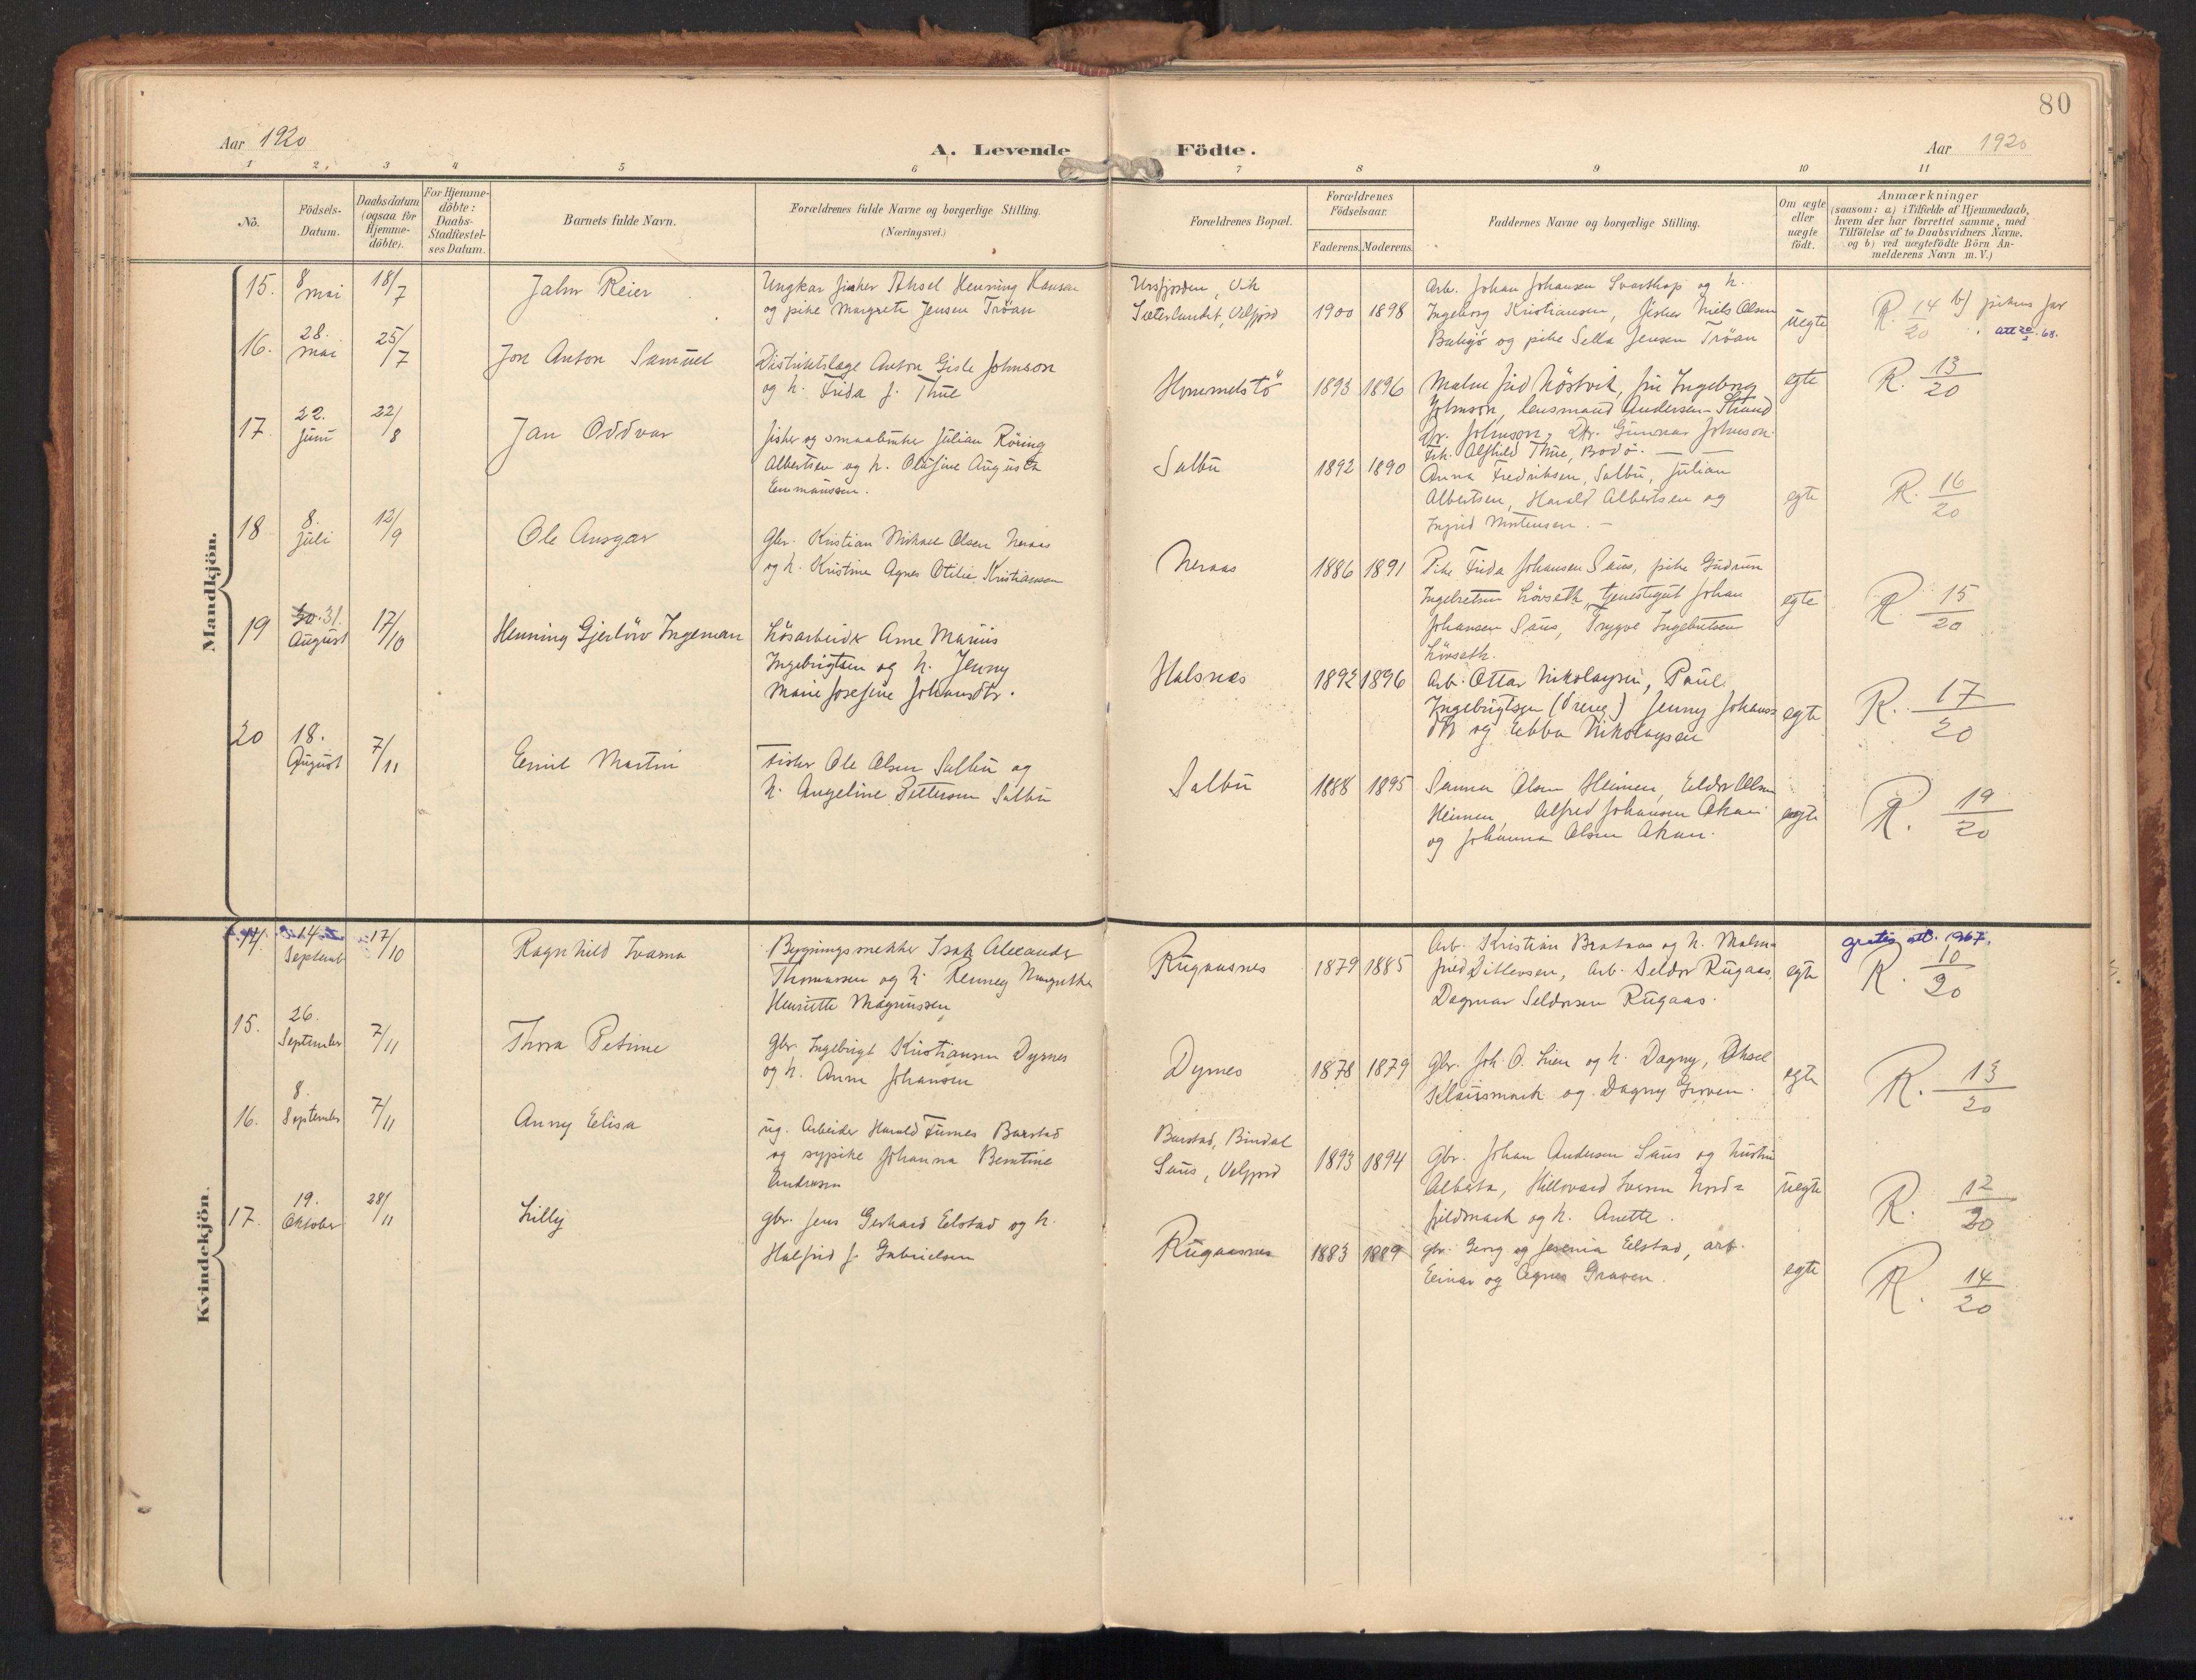 80
Aar 1920
A. Levende Födte.
Aar 1920
1 2. 3 4 5 6 7 8 9 10 11
No.
Födsels-
Datum.
Daabsdatum
(ogsaa for
Hjemme-
döbte).
For Hjemme-
döbte:
Daabs-
Stadfæstel-
ses Datum.
Barnets fulde Navn.
Forældrenes fulde Navne og borgerlige Stilling.
(Næringsvei.)
Forældrenes Bopæl.
Forældrenes
Födselsaar.
Faderens. Moderens.
Faddernes Navne og borgerlige Stilling.
Om ægte
eller
uægte
födt.
Anmærkninger
(saasom: a) i Tilfælde af Hjemmedaab,
hvem der har forrettet samme, med
Tilföielse af to Daabsvidners Navne.
og b) ved uægtefödte Börn An-
melderens Navn m. V.)
Mandkjön.
15. 8 mai 18/7
Jahn Reier
Ungkar fisker Aksel Henning Hansen
og pike Margrete Jensen Tröan
Ursfjorden, Vik
Sæterlandet, Velfjord
1900 1898
Arb. Johan Johansen Svarthop og h.
Ingeborg Kristiansen, fisker Niels Olsen
og pike Sella Jensen Tröan
uegte
R. 14/20 b) pikens far
16. 28. mai 25/7
Jon Anton Samuel
Distriktslæge Anton Gisle Johnson
og h. Frida J. Thue
Hommelstö
1893 1896
Malmfrid Höstvik, fru Ingeborg
Johnson, lensmand Andersen-Strand
Dr. Johnson, Dr. Gunnar Johnson.
Frk. Alfhild Thue, Bodö. — —
egte
R. 13/20
17. 22. Juni 22/8
Jan Oddvar
fisker og smaabruker Julian Röring
Albertsen og h. Olufine Augusta
Emmaussen.
Salbu
1892 1890
Anna Fredriksen, Salbu, Julian
Albertsen, Harald Albertsen og
Ingrid Mortensen. —
egte
R. 16/20
18 8. Juli 12/9
Ole Ansgar
Gbr. Kristian Mikael Olsen Neraas
og h. Kristine Agnes Otilie Kristiansen
Neraas
1886 1891
Pike Frida Johansen Saus, pike Gudrun
Ingebretsen Lövseth, tjenestegut Johan
Johansen Saus, Trygve Ingebretsen
Lövseth.
egte
R. 15/20
19 31. August 17/10
Henning Gjerlöw Ingeman
Lösarbeider Arne Marius
Ingebrigtsen og h. Jenny
Marie Josefine Johansdtr.
Halsnes
1892 1896
Arb. Ottar Nikolaysen, Paul
Ingebrigtsen (Öreng) Jenny Johans-
dtr og Ebba Nikolaysen
egte
R. 17/20
20 18. August 7/11
Emil Martin
Fisker Ole Olsen Salbu og
h. Angeline Pettersen Salbu
Salbu
1888 1895
Sanna Olsen Heimen, Eldor Olsen
Heimen, Alfred Johansen Akan
og Johanna Olsen Akan.
egte
R. 19/20
Kvindekjön.
14. 14 September 17/10
Ragnhild Ivarna
Bygningssnekker Isak Alexander
Thomassen og h. Renney Margrethe
Henriette Magnussen
Rugaasnes
1879 1885
Arb. Kristian Brataas og h. Malm-
frid Ditlevsen, arb. Seldor Rugaas,
Dagmar Seldorsen Rugaas.
egte
gratis att. 1967.
R. 10/20
15. 26. September 7/11
Thora Petrine
Gbr. Ingebrigt Kristiansen Dyrnes
og h. Anna Johansen
Dyrnes
1878 1879
Gbr. Joh. O. Lien og h. Dagny, Aksel
Klausmark og Dagny Groven.
egte
R. 13/20
16. 8. September 7/11
Anny Elisa
ug. Arbeider Harald Furnes Barstad
og sypike Johanna Berntine
Andersen
Barstad, Bindal
Saus, Velfjord
1893 1894
Gbr. Johan Andersen Saus og hustru
Alberta, Hillovard Iversen Nord-
fjeldmark og h. Anette.
uegte
R. 12/20
17. 19. Oktober 28/11
Lilly
gbr. Jens Gerhard Eelstad og h.
Halfrid J. Gabrielsen
Rugaasnes
1883 1889
gbr. Georg og Jesenia Eelstad, arb.
Einar og Agnes Graven.
egte
R. 14/20